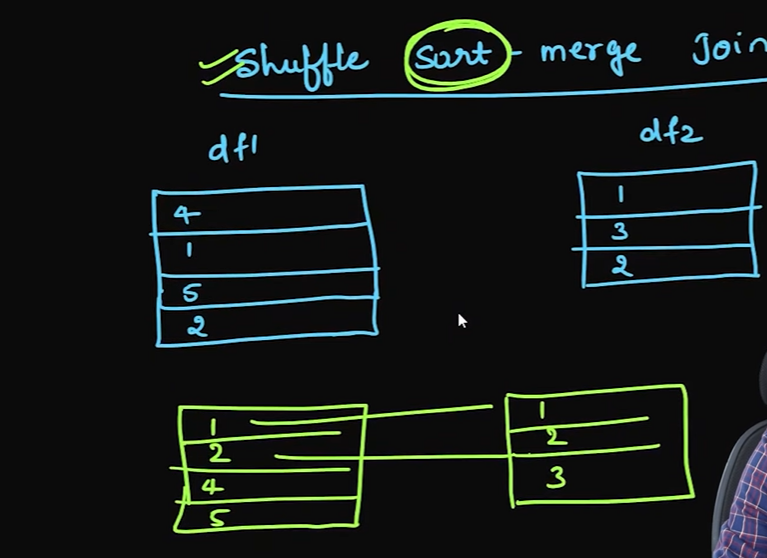 Shuffle Sort - merge Join
df1
df2
4
1
5
2
1
3
2
1
2
4
5
1
2
3